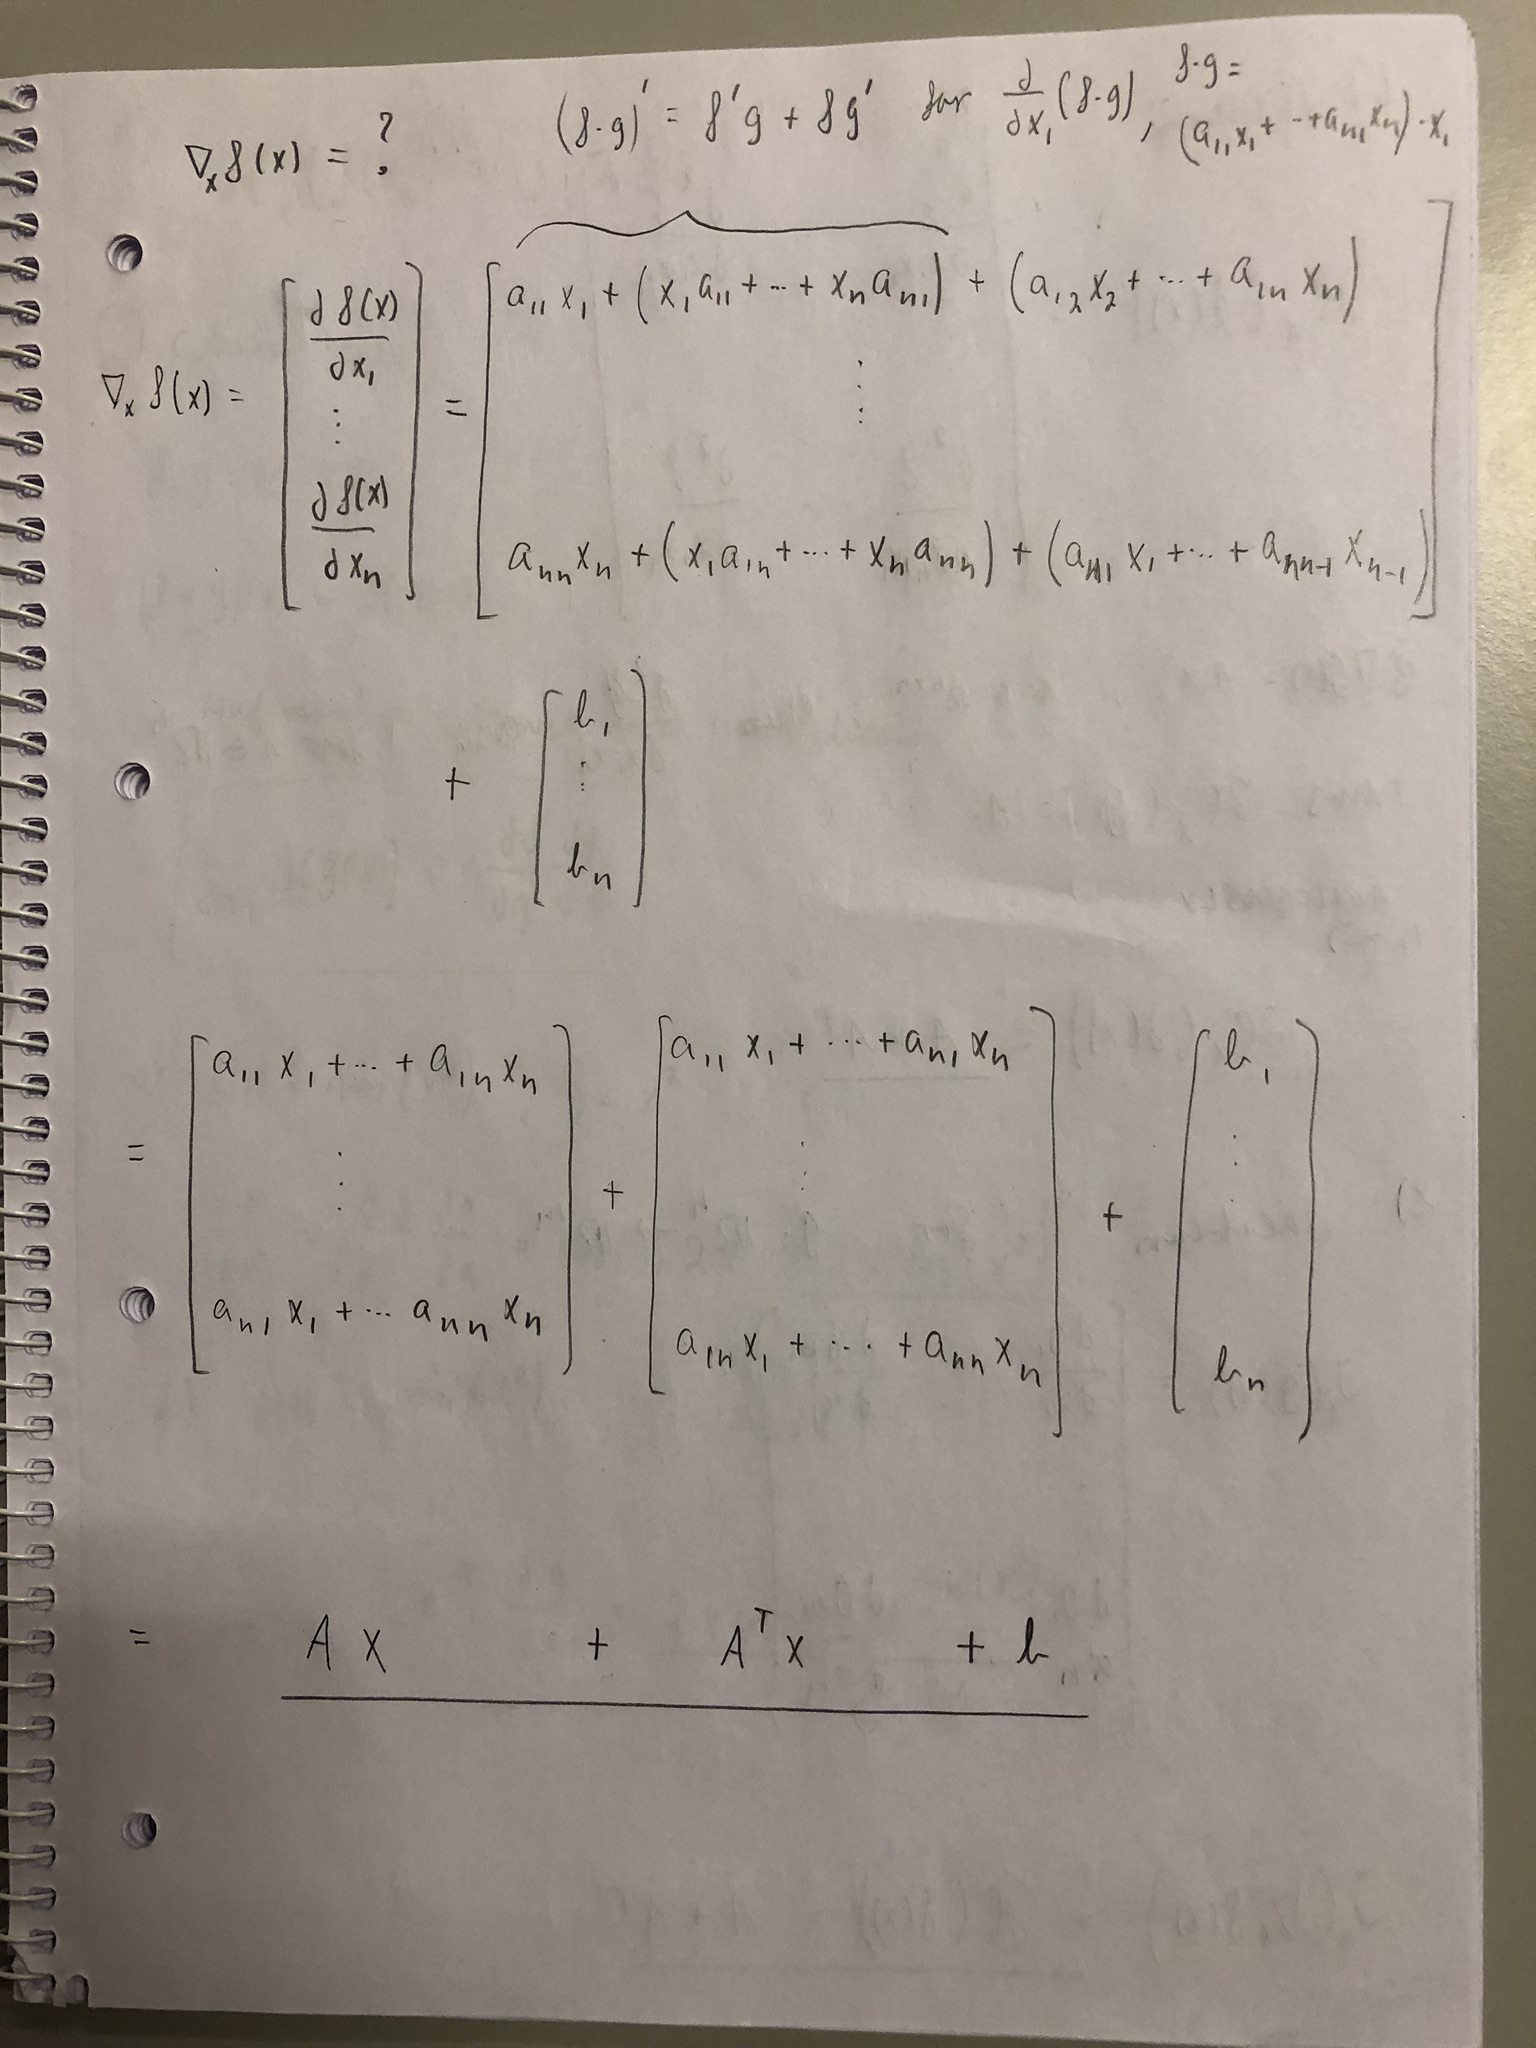 ∇ₓ f(x) = ? (f·g)' = f'g + fg' for ∂/∂x₁ (f·g), f·g = (a₁₁x₁ + ··+ aₙ₁xₙ)·x₁
∇ₓ f(x) = [ ∂f(x)/∂x₁ ⋮ ∂f(x)/∂xₙ ] = [ a₁₁x₁ + (x₁a₁₁ + ··· + xₙaₙ₁) + (a₁₂x₂ + ··· + a₁ₙxₙ) ⋮ aₙₙxₙ + (x₁a₁ₙ + ··· + xₙaₙₙ) + (aₙ₁x₁ + ··· + aₙₙ₋₁xₙ₋₁) ]
+ [ b₁ ⋮ bₙ ]
= [ a₁₁x₁ + ··· + a₁ₙxₙ ⋮ aₙ₁x₁ + ··· aₙₙxₙ ] + [ a₁₁x₁ + ··· + aₙ₁xₙ ⋮ a₁ₙx₁ + ··· + aₙₙxₙ ] + [ b₁ ⋮ bₙ ]
= Ax + Aᵀx + b